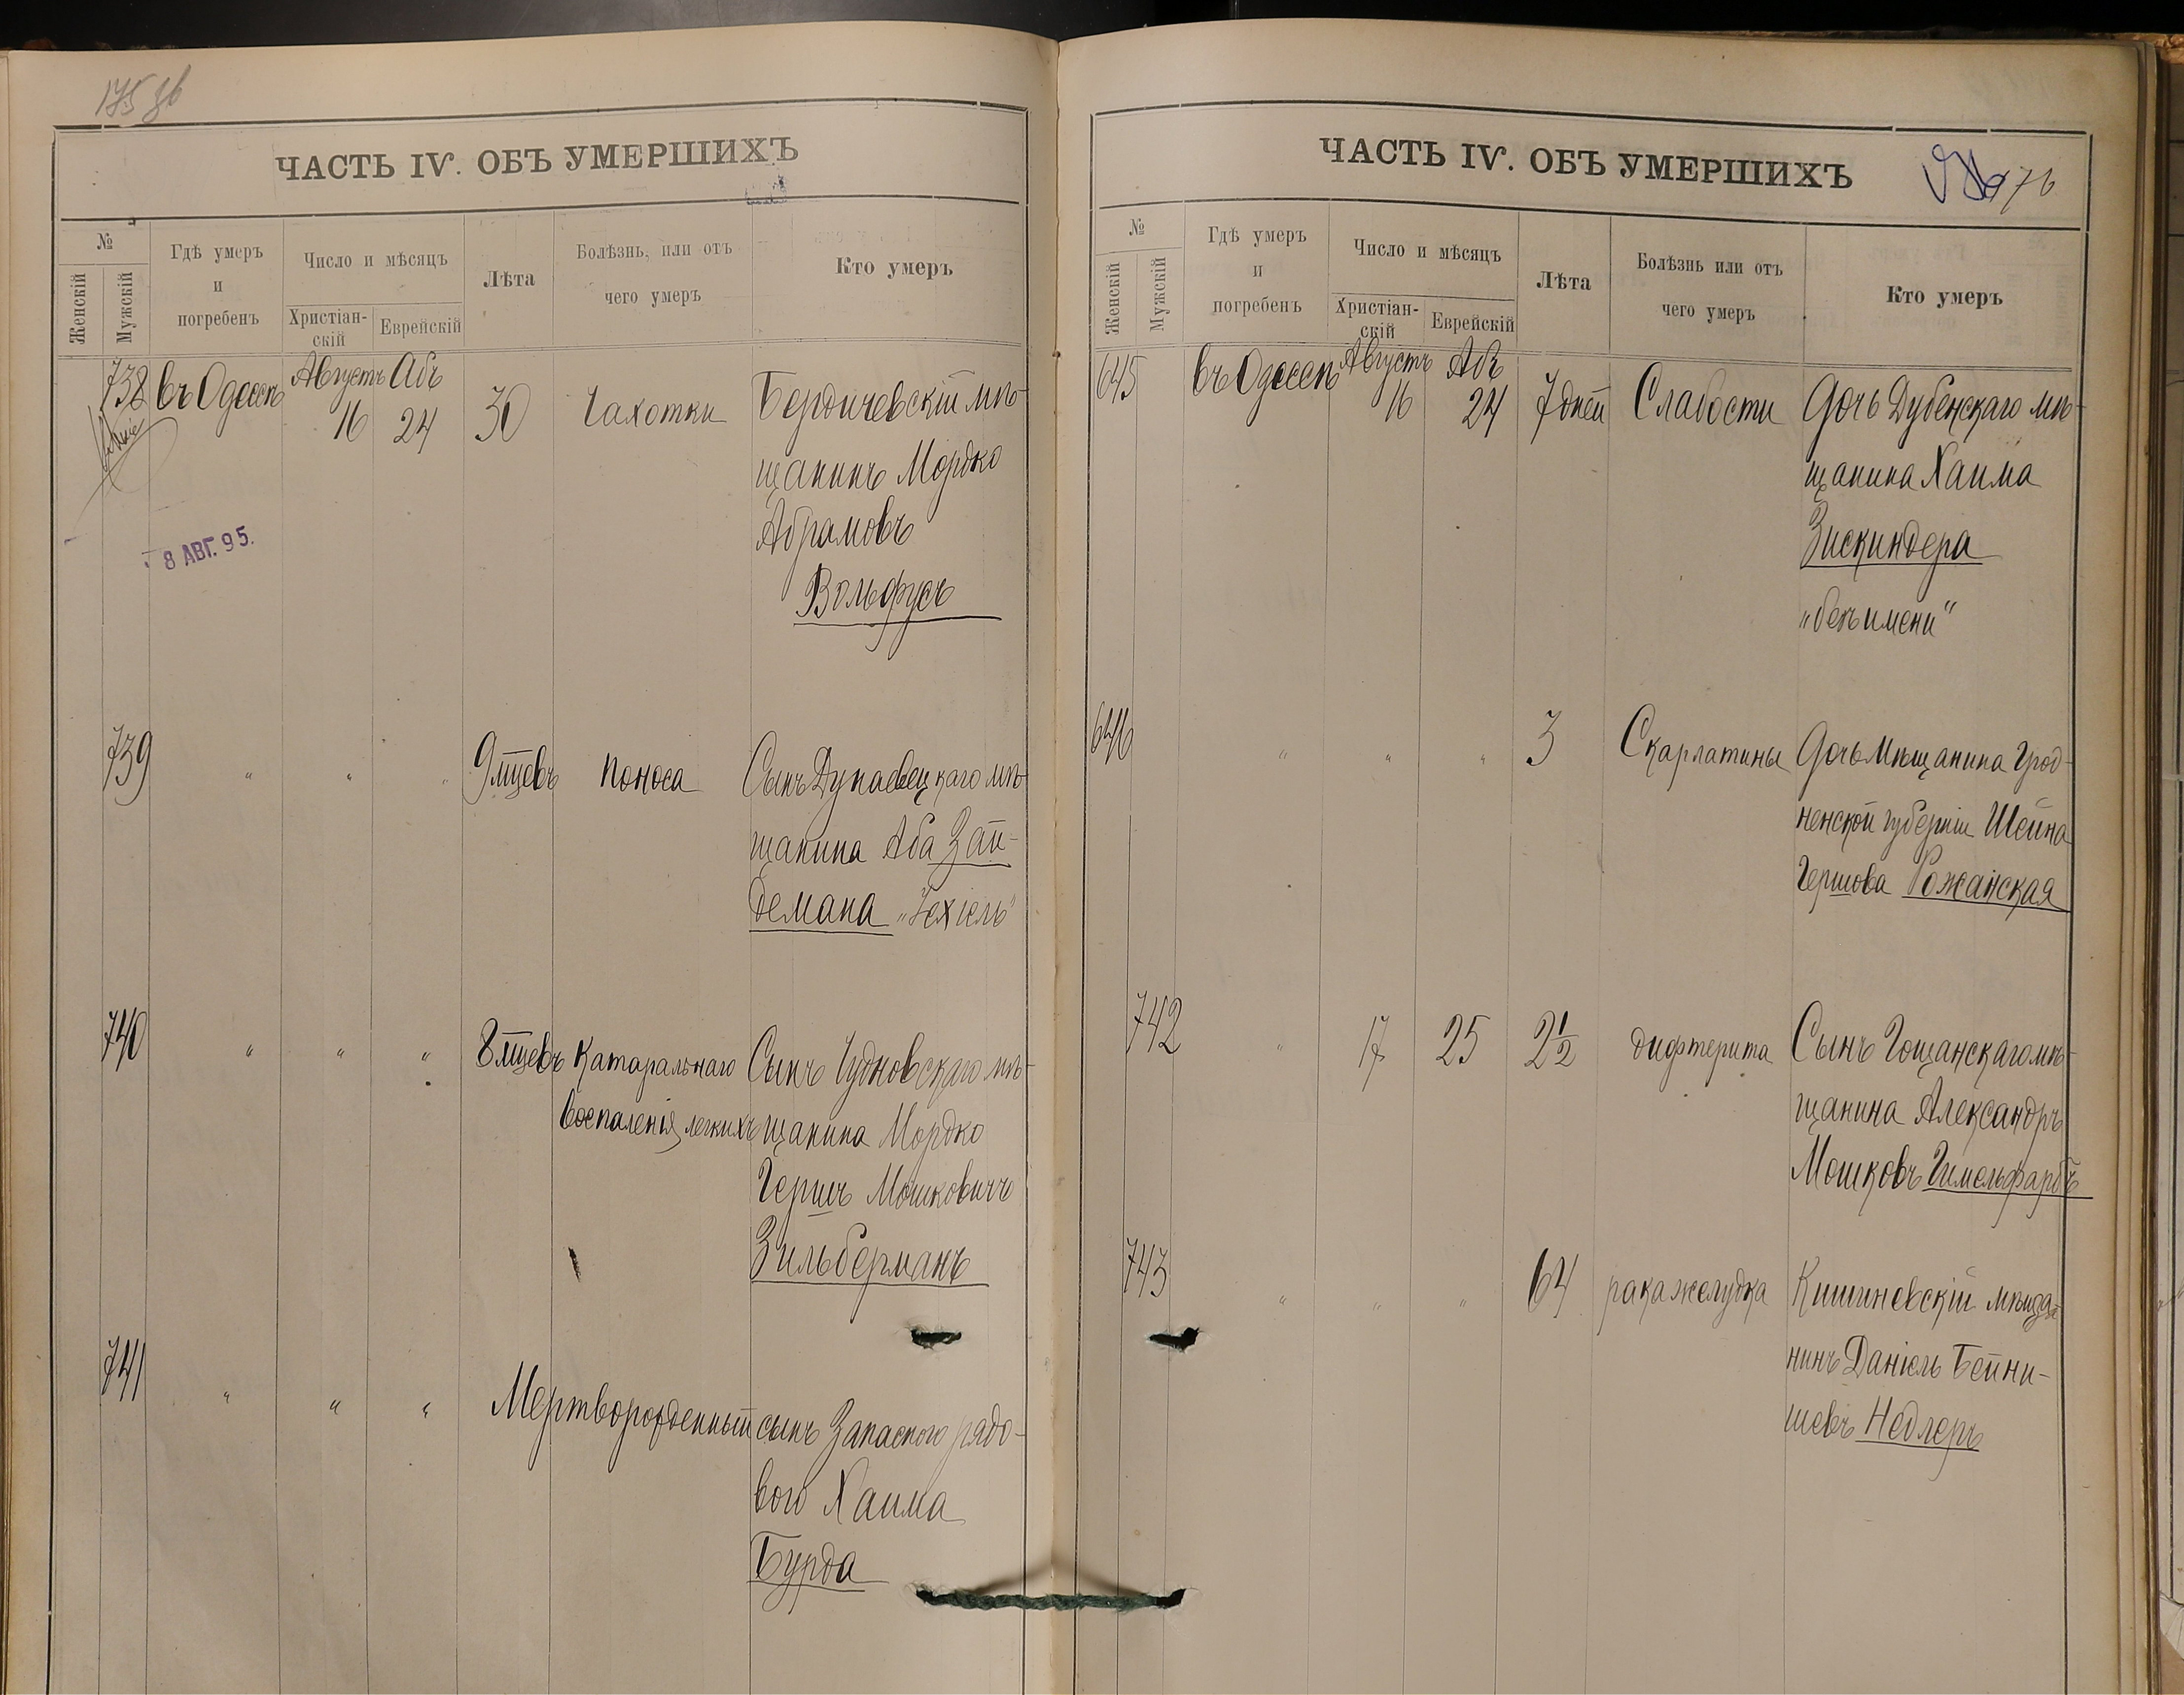 175 об
ЧАСТЬ IV. ОБЪ УМЕРШИХЪ
№
Женскій
Мужскій
Гдѣ умеръ
и
погребенъ
Число и мѣсяцъ
Христіан-
скій
Еврейскій
Лѣта
Болѣзнь, или отъ
чего умеръ
Кто умеръ
738 въ Одессѣ Августъ 16 Абъ 24 30 Чахотки Бердичевскій мѣ-
щанинъ Мордко
Абрамовъ
Вольфусъ
8 АВГ. 95.
739 " " " 9 мцевъ Поноса Сынъ Дунаевецкаго мѣ-
щанина Аба Зай-
демана „Іехіель“
740 " " " 8 мцевъ Катаральнаго Сынъ Чудновскаго мѣ-
воспаленія легкихъ щанина Мордко
Гершъ Мошковичъ
Зильберманъ
741 " " " Мертворожденный сынъ Запасного рядо-
вого Хаима
Бурда
ЧАСТЬ IV. ОБЪ УМЕРШИХЪ
176
№
Женскій
Мужскій
Гдѣ умеръ
и
погребенъ
Число и мѣсяцъ
Христіан-
скій
Еврейскій
Лѣта
Болѣзнь или отъ
чего умеръ
Кто умеръ
645 въ Одессѣ Августъ 16 Абъ 24 7 дней Слабости Дочь Дубенскаго мѣ-
щанина Хаима
Зискиндера
„безъ имени“
646 " " " 3 Скарлатины Дочь Мѣщанина Грод-
ненской губерніи Шейна
Гершова Рожанская
742 " 17 25 2 1/2 дифтерита Сынъ Гощанскаго мѣ-
щанина Александръ
Мошковъ Гимельфарбъ
743 " " " 64 рака желудка Кишиневскій мѣща-
нинъ Даніель Бейни-
шевъ Недлеръ